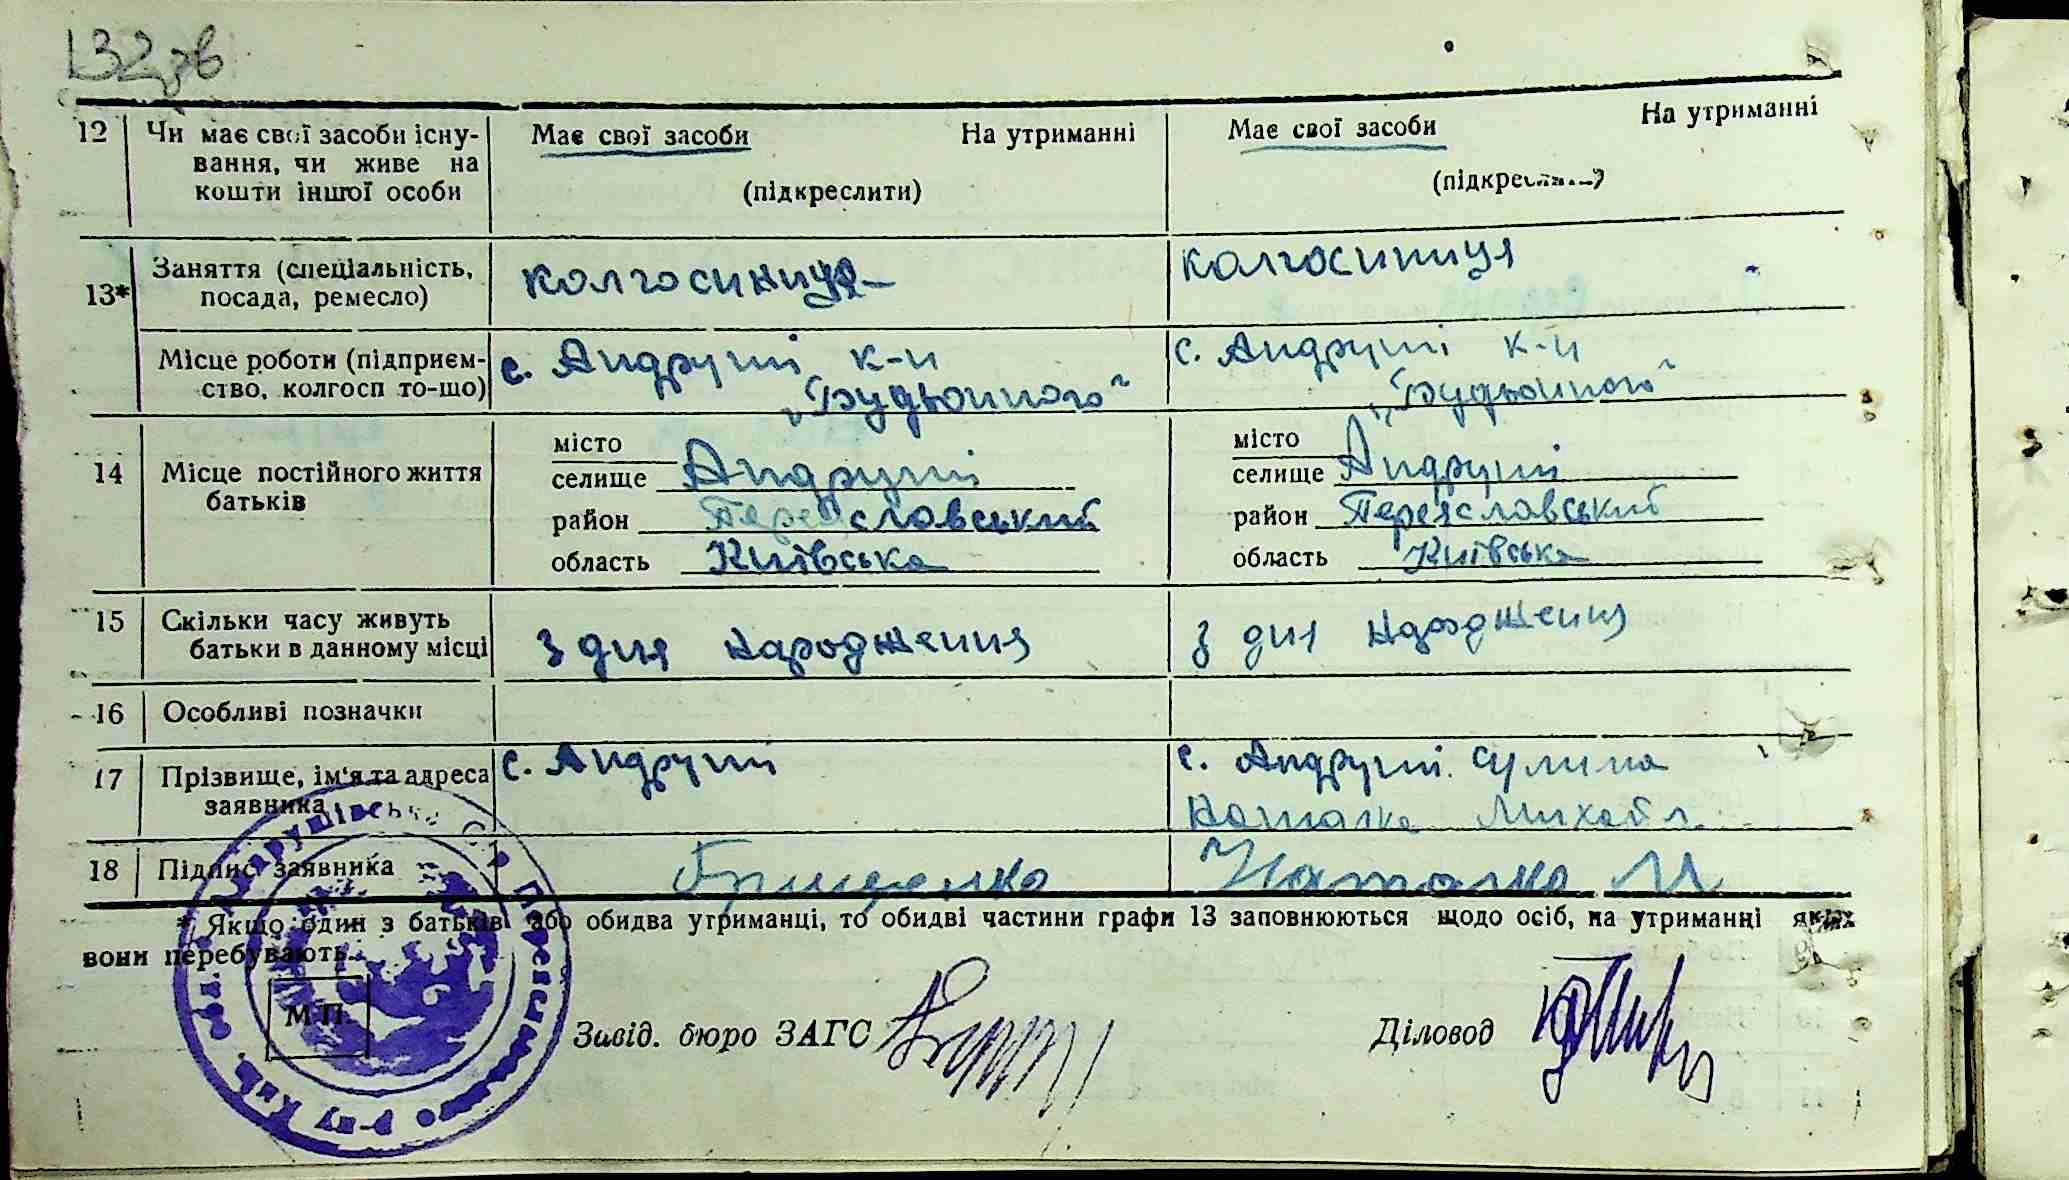 132 зв
12 Чи має свої засоби існу- Має свої засоби На утриманні Має свої засоби На утриманні
вання, чи живе на
кошти іншої особи (підкреслити) (підкреслити)
13* Заняття (спеціальність, колгоспниця колгоспниця
посада, ремесло)
Місце роботи (підприєм- с. Андруші к-п с. Андруші к-п
ство, колгосп то-що) „Будьонного" „Будьонного"
місто місто
14 Місце постійного життя селище Андруші селище Андруші
батьків район Переяславський район Переяславський
область Київська область Київська
15 Скільки часу живуть з дня народження з дня народження
батьки в данному місці
16 Особливі позначки
17 Прізвище, ім'я та адреса с. Андруші с. Андруші Сулима
заявника Наталка Михайл.
18 Підпис заявника Грищенко Наталка М
* Якщо один з батьків або обидва утриманці, то обидві частини графи 13 заповнюються щодо осіб, на утриманні яких
вони перебувають.
М.П. Завід. бюро ЗАГС Діловод